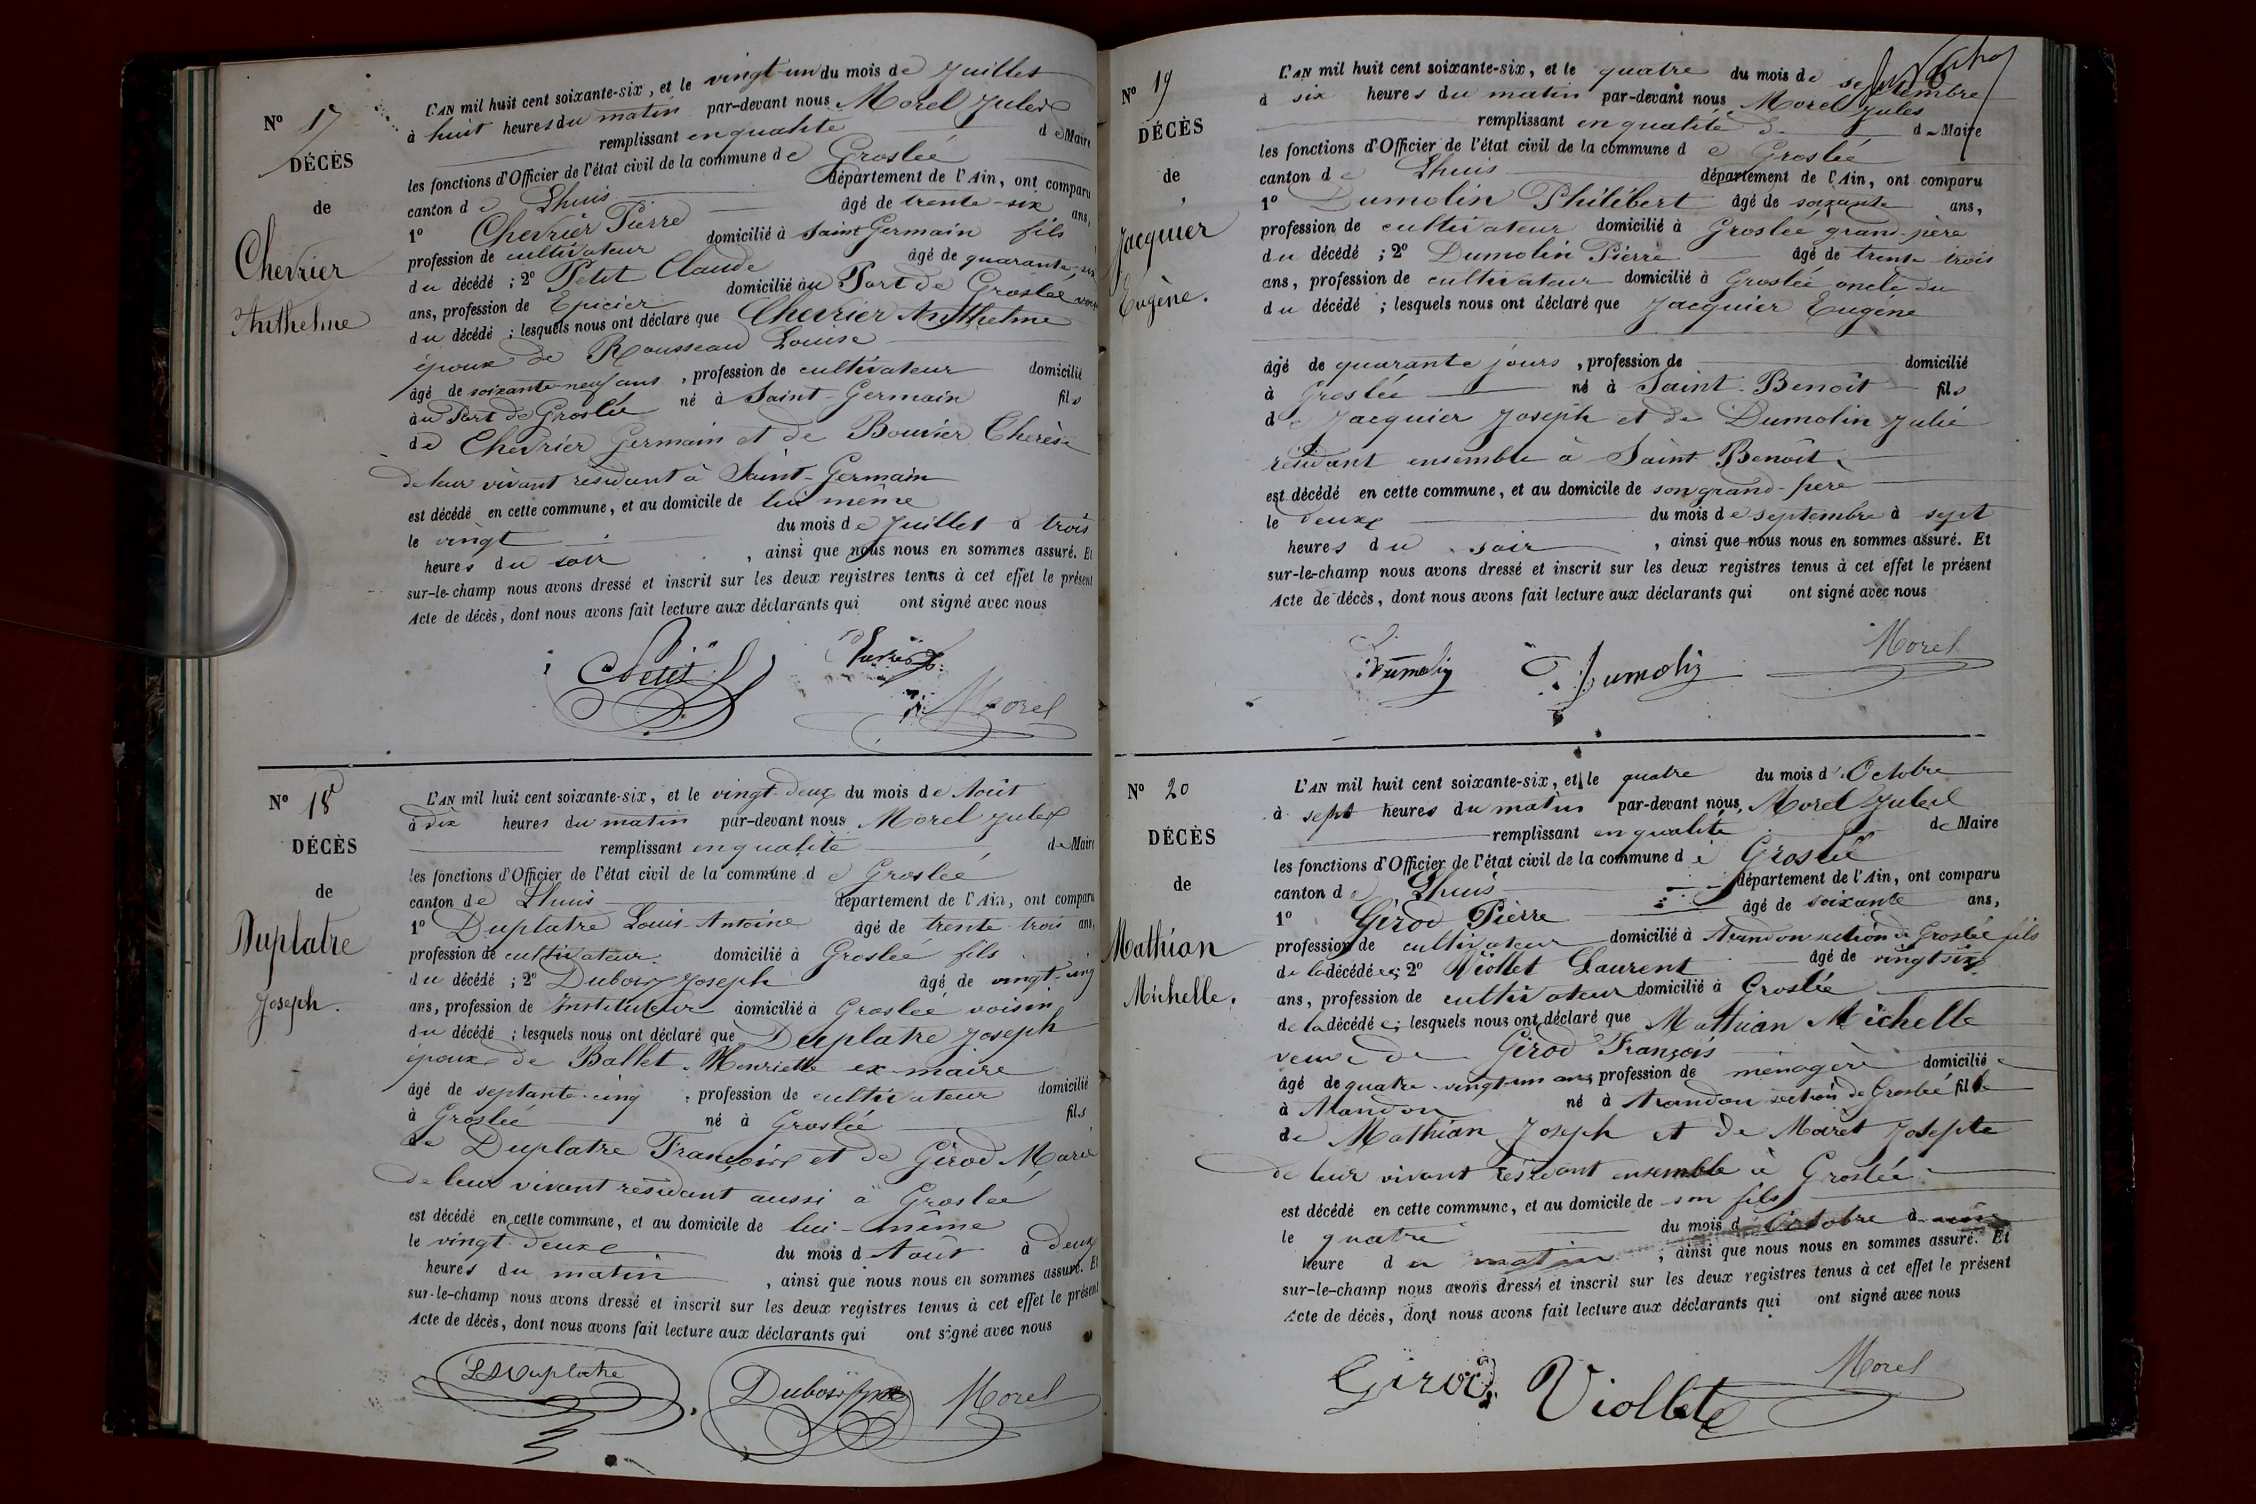 N° 17
DÉCÈS
de
Chevrier
Anthelme
L'AN mil huit cent soixante-six, et le vingt-un du mois de Juillet
à huit heures du matin par-devant nous Morel Jules
remplissant en qualité de Maire
les fonctions d'Officier de l'état civil de la commune de Groslée
canton de Lhuis département de l'Ain, ont comparu
1° Chevrier Pierre âgé de trente-six ans,
profession de cultivateur domicilié à Saint Germain fils
du décédé ; 2° Petit Claude âgé de quarante-six
ans, profession de Epicier domicilié au Port de Groslée voisin
du décédé ; lesquels nous ont déclaré que Chevrier Anthelme
époux de Rousseau Louise
âgé de soixante-neuf ans, profession de cultivateur domicilié
au Port de Groslée né à Saint-Germain fils
de Chevrier Germain et de Bouvier Thérèse
de leur vivant résidant à Saint-Germain
est décédé en cette commune, et au domicile de lui même
le vingt du mois de Juillet à trois
heures du soir, ainsi que nous nous en sommes assuré. Et
sur-le-champ nous avons dressé et inscrit sur les deux registres tenus à cet effet le présent
Acte de décès, dont nous avons fait lecture aux déclarants qui ont signé avec nous
Petit
Morel
N° 18
DÉCÈS
de
Duplatre
Joseph.
L'AN mil huit cent soixante-six, et le vingt-deux du mois de Août
à dix heures du matin par-devant nous Morel Jules
remplissant en qualité de Maire
les fonctions d'Officier de l'état civil de la commune de Groslée
canton de Lhuis département de l'Ain, ont comparu
1° Duplatre Louis-Antoine âgé de trente-trois ans,
profession de cultivateur domicilié à Groslée fils
du décédé ; 2° Joseph âgé de vingt-cinq
ans, profession de Instituteur domicilié à Groslée voisin
du décédé ; lesquels nous ont déclaré que Duplatre Joseph
époux de Ballet Henriette ex-maire
âgé de septante-cinq, profession de cultivateur domicilié
à Groslée né à Groslée fils
de Duplatre François et de Girod Marie
de leur vivant résidant aussi à Groslée
est décédé en cette commune, et au domicile de lui-même
le vingt-deux du mois d Août à deux
heures du matin, ainsi que nous nous en sommes assuré. Et
sur-le-champ nous avons dressé et inscrit sur les deux registres tenus à cet effet le présent
Acte de décès, dont nous avons fait lecture aux déclarants qui ont signé avec nous
LADuplatre
Morel
N° 19
DÉCÈS
de
Jacquier
Eugène.
L'AN mil huit cent soixante-six, et le quatre du mois de septembre
à six heures du matin par-devant nous Morel Jules
remplissant en qualité de Maire
les fonctions d'Officier de l'état civil de la commune de Groslée
canton de Lhuis département de l'Ain, ont comparu
1° Dumolin Philibert âgé de soixante ans,
profession de cultivateur domicilié à Groslée grand-père
du décédé ; 2° Dumolin Pierre âgé de trente-trois
ans, profession de cultivateur domicilié à Groslée oncle du
du décédé ; lesquels nous ont déclaré que Jacquier Eugène
âgé de quarante jours, profession de domicilié
à Groslée né à Saint-Benoît fils
de Jacquier Joseph et de Dumolin Julie
résidant ensemble à Saint Benoît
est décédé en cette commune, et au domicile de son grand-père
le deux du mois de septembre à sept
heures du soir, ainsi que nous nous en sommes assuré. Et
sur-le-champ nous avons dressé et inscrit sur les deux registres tenus à cet effet le présent
Acte de décès, dont nous avons fait lecture aux déclarants qui ont signé avec nous
Dumolin Dumolin Morel
N° 20
DÉCÈS
de
Mathian
Michelle.
L'AN mil huit cent soixante-six, et le quatre du mois d'Octobre
à sept heures du matin par-devant nous, Morel Jules
remplissant en qualité de Maire
les fonctions d'Officier de l'état civil de la commune de Groslée
canton de Lhuis département de l'Ain, ont comparu
1° Girod Pierre âgé de soixante ans,
profession de cultivateur domicilié à Arandon section de Groslée fils
de la décédée; 2° Viollet Laurent âgé de vingt six
ans, profession de cultivateur domicilié à Groslée
de la décédée; lesquels nous ont déclaré que Mathian Michelle
veuve de Girod François
âgé de quatre-vingt-un ans, profession de ménagère domiciliée
à Arandon né à Arandon section de Groslée fille
de Mathian Joseph et de Maret Josepte
de leur vivant résidant ensemble à Groslée
est décédé en cette commune, et au domicile de son fils
le quatre du mois d'Octobre à une
heure du matin, ainsi que nous nous en sommes assuré. Et
sur-le-champ nous avons dressé et inscrit sur les deux registres tenus à cet effet le présent
Acte de décès, dont nous avons fait lecture aux déclarants qui ont signé avec nous
Girod Viollet Morel